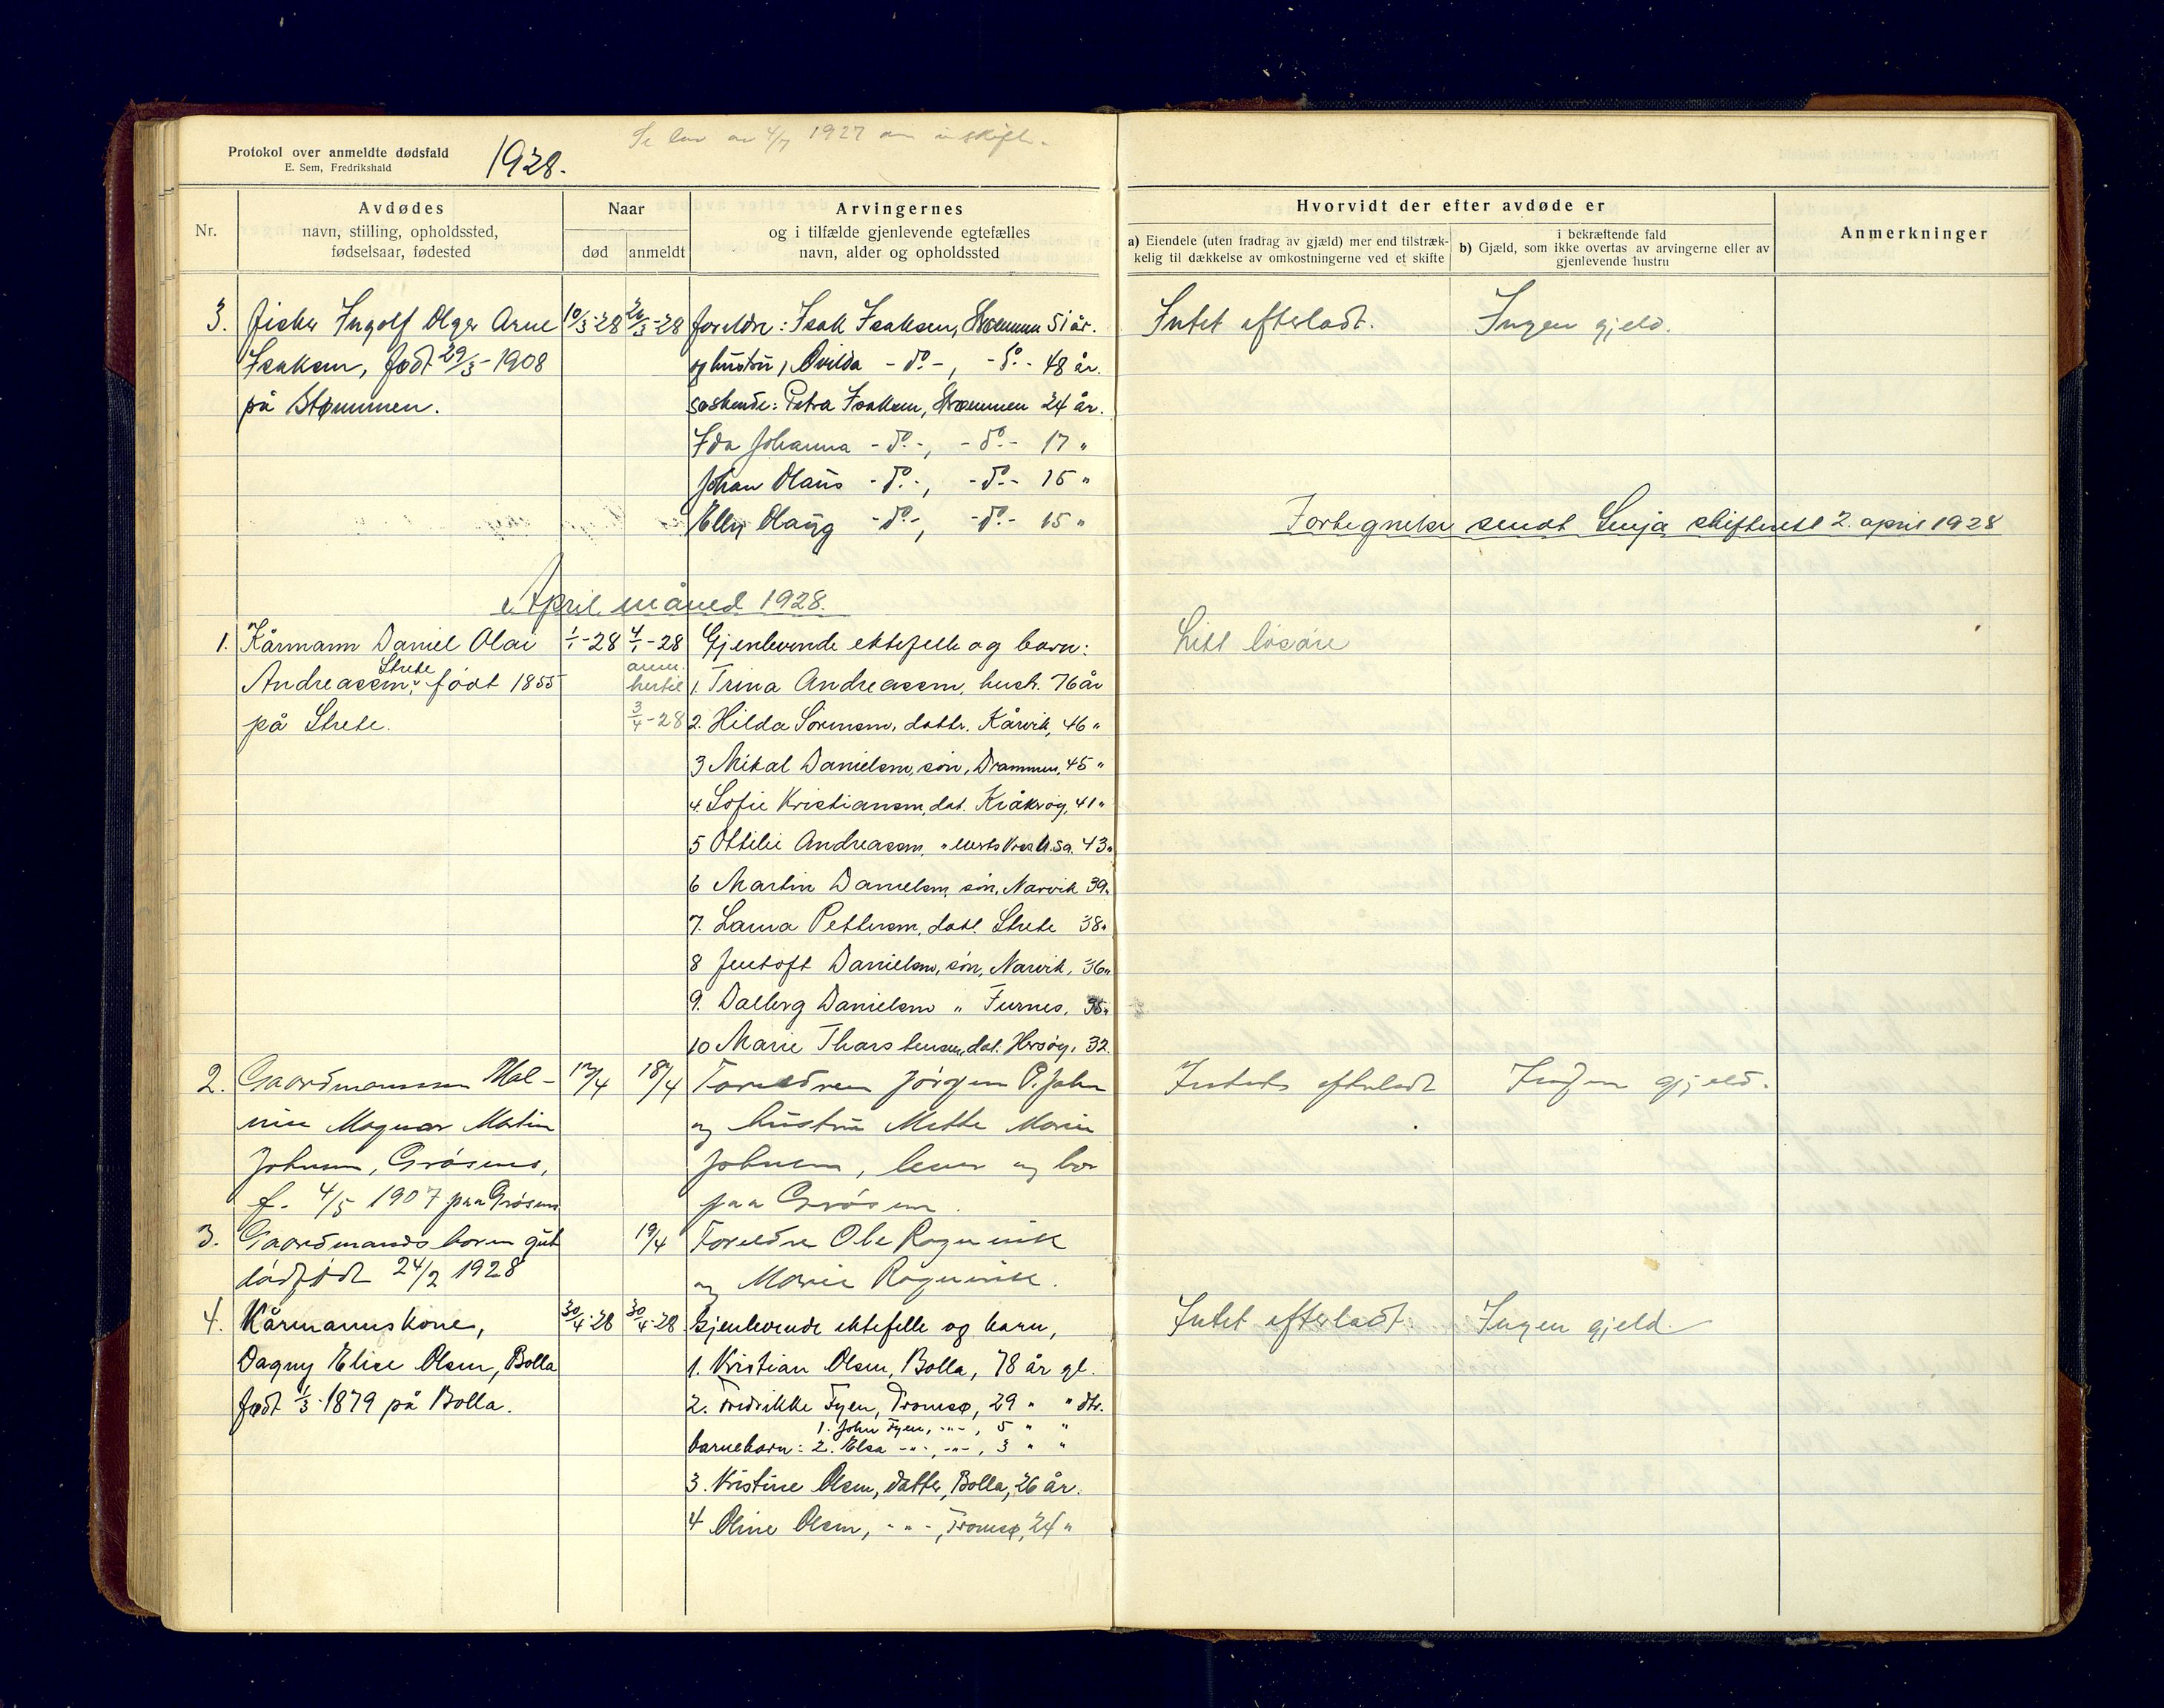 Protokol over anmeldte dødsfald
E. Sem, Fredrikshald
1928.
1927 skifte.
Nr.
Avdødes
navn, stilling, opholdssted,
fødselsaar, fødested
Naar
død
anmeldt
Arvingernes
og i tilfælde gjenlevende egtefælles
navn, alder og opholdssted
Hvorvidt der efter avdøde er
a) Eiendele (uten fradrag av gjæld) mer end tilstræk-
kelig til dækkelse av omkostningerne ved et skifte
i bekræftende fald
b) Gjæld, som ikke overtas av arvingerne eller av
gjenlevende hustru
Anmerkninger
3. Fisker Ingolf Olger Arne
Isaksen, født 29/3-1908
på Strømmen.
10/3-28 20/3-28
foreldre: Isak Isaksen, Strømmen 51 år.
og hustru, Ovilda - do -, - do - 48 år.
søskende: Petra Isaksen, Strømmen 24 år.
Ida Johanna - do -, - do - 17 "
Johan Olaus - do -, - do - 15 "
Elly Olaug - do -, - do - 15 "
Intet efterladt.
Ingen gjeld.
Fortegnelse sendt Senja skifterett 2. april 1928
April måned 1928.
1. Kårmann Daniel Olai
Andreassen, Strete født 1855
på Strete.
1/1-28 4/1-28
anm.
hertil
3/4-28
Gjenlevende ektefelle og barn:
1. Trina Andreassen, hustr. 76 år
2. Hilda Sørensen, dattr. Kårvik, 46 "
3 Mikal Danielsen, søn, Drammen, 45 "
4. Sofie Kristiansen, dat. Kråkrøy, 41 "
5 Ottilie Andreassen, " U.S.a. 43 "
6 Martin Danielsen, søn, Narvik 39 "
7. Laura Pettersen, datt. Strete 38 "
8 Jentoft Danielsen, søn, Narvik, 36 "
9. Dalberg Danielsen " Furnes, 35 "
10 Marie Tharstensen, dat. 32.
Litt løsøre
2. Gaardmannssøn Mal-
min Magnar Martin
Johnsen, Grøsnes,
f. 4/5 1907 paa Grøsnes
12/4 18/4
Foreldrene Jørgen P. John
og hustru Mette Marie
Johnsen, lever og bor
paa Grøsnes.
Intet efterladt
Ingen gjeld.
3. Gaardmands barn gut
dødfødt 24/2 1928
19/4
Foreldre Ole Rognvik
og Marie Rognvik.
4. Kårmannskone,
Dagny Elise Olsen, Bolla
født 1/3-1879 på Bolla.
30/4-28 30/4-28
Gjenlevende ektefelle og barn,
1. Kristian Olsen, Bolla, 78 år gl.
2. Fredrikke Fyen, Tromsø, 29 " " dtr.
1. John Fyen, -"-, 5 " "
barnebarn: 2. Elsa -"-, -"-, 3 " "
3. Kristine Olsen, datter, Bolla, 26 år.
4 Oline Olsen, -"-, Tromsø, 24 "
Intet efterladt.
Ingen gjeld.